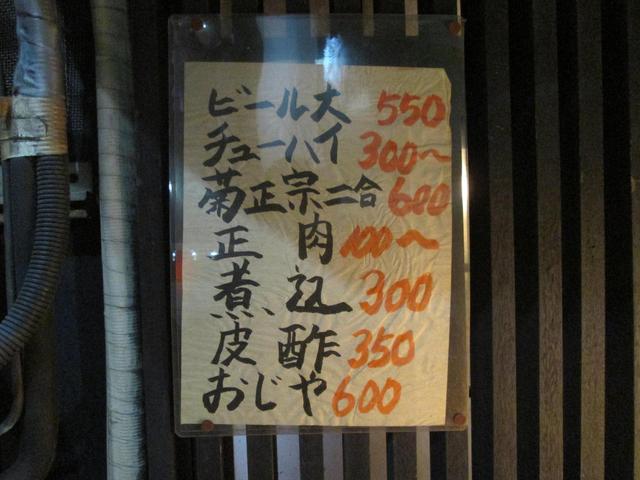 ビール大 550
チューハイ 300〜
菊正宗二合 600
正肉 100〜
煮込 300
皮酢 350
おじや 600